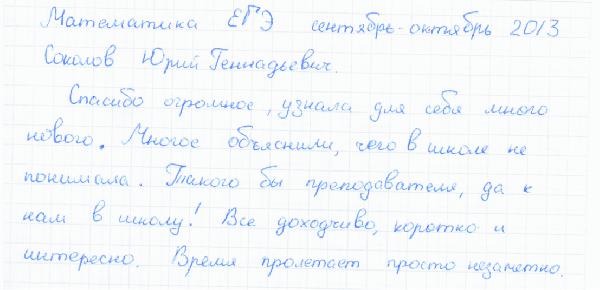 Математика ЕГЭ сентябрь-октябрь 2013
Соколов Юрий Геннадьевич.
Спасибо огромное, узнала для себя много
нового. Многое объяснили, чего в школе не
понимала. Такого бы преподавателя, да к
нам в школу! Все доходчиво, коротко и
интересно. Время пролетает просто незаметно.